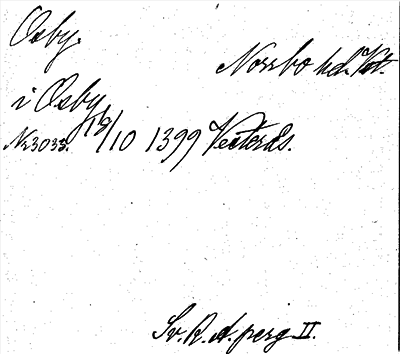 Osby.
Norrbo hd. Vstm.
i Osby
Nr 3033. 18/10 1399 Vesterås.
Sv. R. A. perg II.